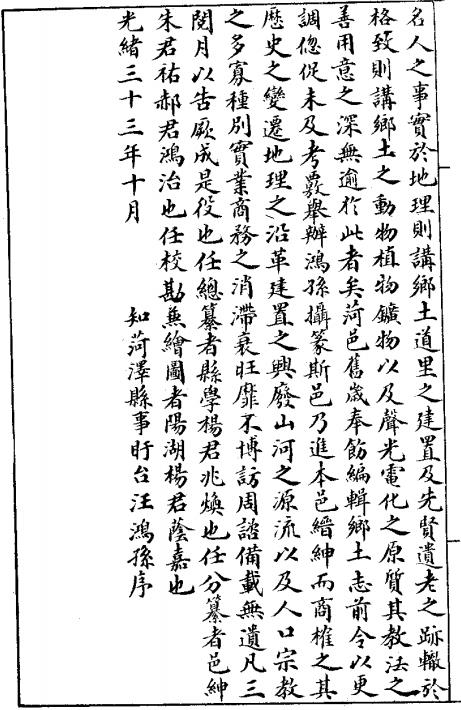 名人之事實於地理則講鄉土道里之建置及先賢遺老之跡轍於
格致則講鄉土之動物植物鑛物以及聲光電化之原質其教法之
善用意之深無逾於此者矣菏邑舊歲奉飭編輯鄉土志前令以更
調倥促未及考覈舉辦鴻孫攝篆斯邑乃進本邑縉紳而商榷之其
歷史之變遷地理之沿革建置之興廢山河之源流以及人口宗教
之多寡種別實業商務之消滯衰旺靡不博訪周諮備載無遺凡三
閱月以告厥成是役也任總纂者縣學楊君兆煥也任分纂者邑紳
朱君祐郝君鴻治也任校勘兼繪圖者陽湖楊君蔭嘉也
光緒三十三年十月 知菏澤縣事盱台汪鴻孫序